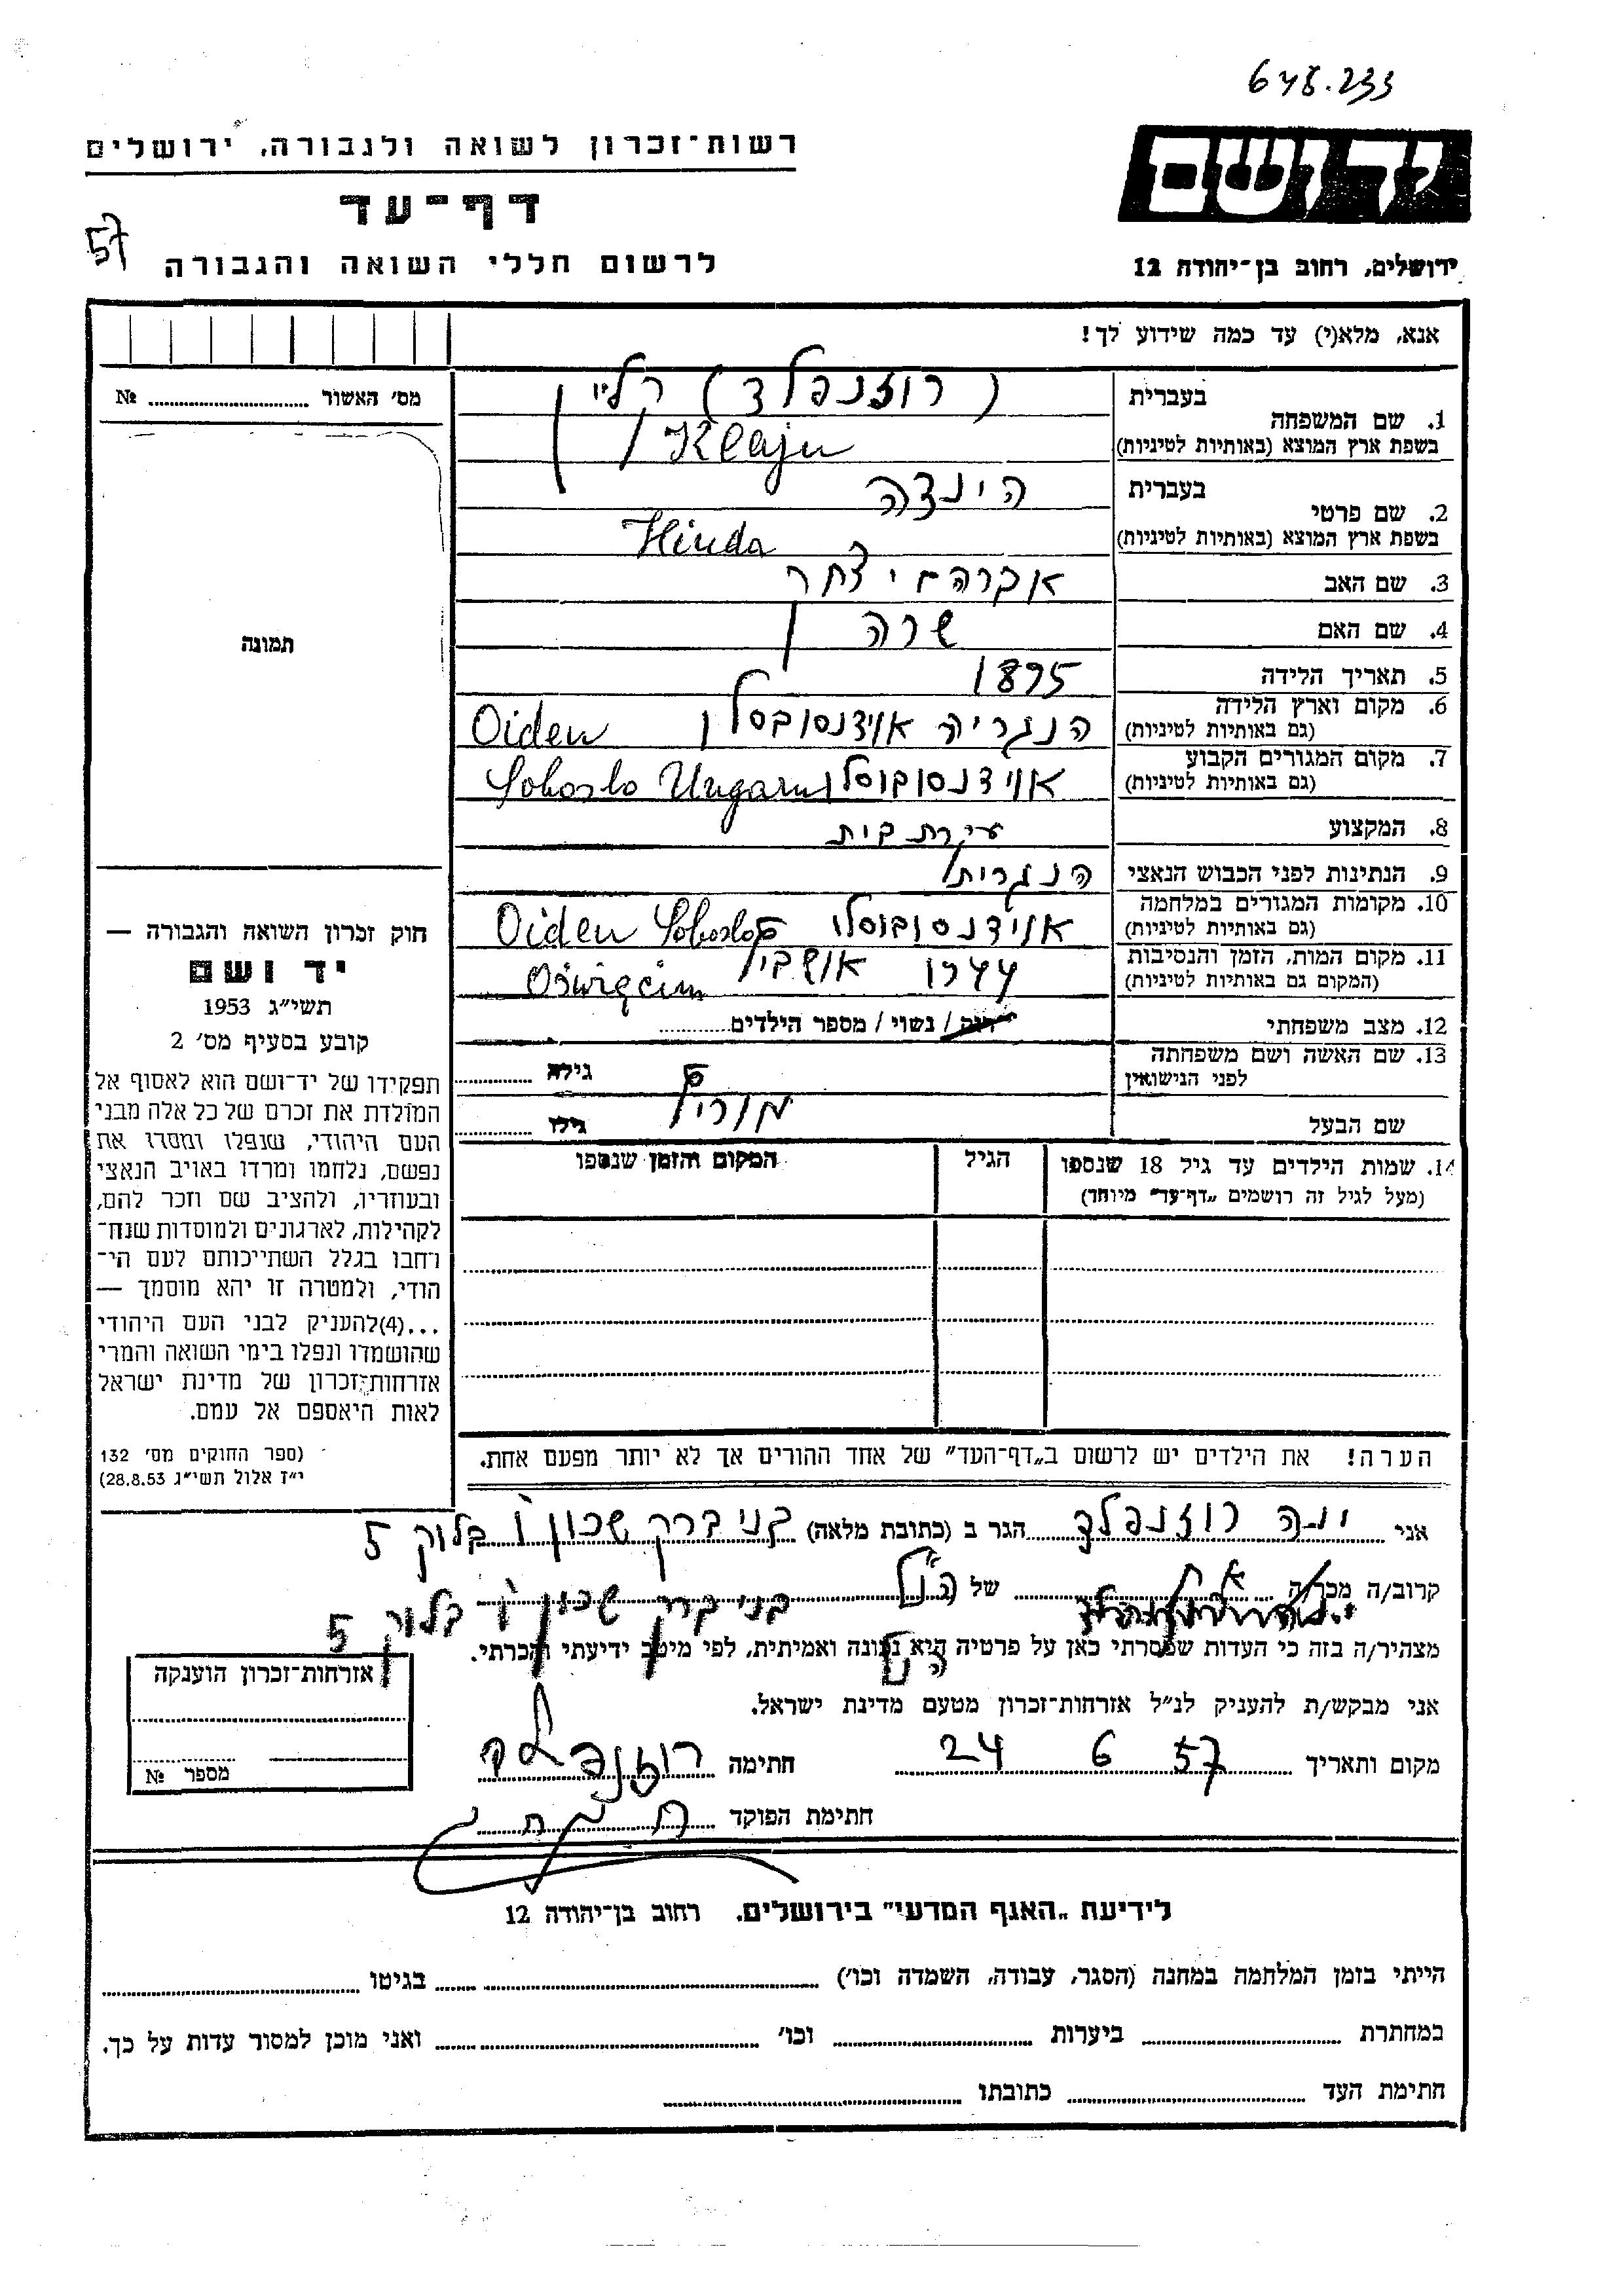 648.233
רשות־זכרון לשואה ולגבורה, ירושלים
דף־עד
לרשום חללי השואה והגבורה
57
יד ושם
ירושלים, רחוב בן־יהודה 12
אנא, מלא(י) עד כמה שידוע לך!
מס׳ האשור № ........
תמונה
1. שם המשפחה בעברית (רוזנפלד) קליין
בשפת ארץ המוצא (באותיות לטיניות) Klajn
2. שם פרטי בעברית הינדה
בשפת ארץ המוצא (באותיות לטיניות) Hinda
3. שם האב אברהם יצחק
4. שם האם שרה
5. תאריך הלידה 1895
6. מקום וארץ הלידה (גם באותיות לטיניות) הנגריה אוידנסובסלו Oiden
7. מקום המגורים הקבוע (גם באותיות לטיניות) אוידנסובוסלו Soboslo Ungarn
8. המקצוע עקרת בית
9. הנתינות לפני הכבוש הנאצי הנגרית
10. מקומות המגורים במלחמה (גם באותיות לטיניות) אוידנסובוסלו Oiden Soboslo
11. מקום המות, הזמן והנסיבות (המקום גם באותיות לטיניות) 1944 Oświęcim
12. מצב משפחתי רווק / נשוי / מספר הילדים ........
13. שם האשה ושם משפחתה לפני הנישואין גילה ........
שם הבעל גילו ........
14. שמות הילדים עד גיל 18 שנספו (מעל לגיל זה רושמים „דף־עד” מיוחד)
הגיל
המקום והזמן שנספו
הערה! את הילדים יש לרשום ב„דף־העד” של אחד ההורים אך לא יותר מפעם אחת.
חוק זכרון השואה והגבורה —
יד ושם
תשי״ג 1953
קובע בסעיף מס׳ 2
תפקידו של יד־ושם הוא לאסוף אל
המולדת את זכרם של כל אלה מבני
העם היהודי, שנפלו ומסרו את
נפשם, נלחמו ומרדו באויב הנאצי
ובעוזריו, ולהציב שם וזכר להם,
לקהילות, לארגונים ולמוסדות שנח־
רחבו בגלל השתייכותם לעם הי־
הודי, ולמטרה זו יהא מוסמך —
...(4)להעניק לבני העם היהודי
שהושמדו ונפלו בימי השואה והמרי
אזרחות־זכרון של מדינת ישראל
לאות היאספם אל עמם.
(ספר החוקים מס׳ 132
י״ז אלול תשי״ג 28.8.53)
אני יונה רוזנפלד הגר ב (כתובת מלאה) בני ברק שכון ו׳ בלוק 5
קרוב/ה מכר/ה אח של הנ״ל
בני ברק שכון ו׳ בלוק 5
מצהיר/ה בזה כי העדות שמסרתי כאן על פרטיה היא נכונה ואמיתית, לפי מיטב ידיעתי והכרתי.
אני מבקש/ת להעניק לנ״ל אזרחות־זכרון מטעם מדינת ישראל.
מקום ותאריך 24 6 57 חתימה רוזנפלד
חתימת הפוקד
אזרחות־זכרון הוענקה
מספר №
לידיעת „האגף המדעי” בירושלים, רחוב בן־יהודה 12
הייתי בזמן המלחמה במחנה (הסגר, עבודה, השמדה וכו׳) ........ בגיטו ........
במחתרת ........ ביערות ........ וכו׳ ........ ואני מוכן למסור עדות על כך.
חתימת העד ........ כתובתו ........